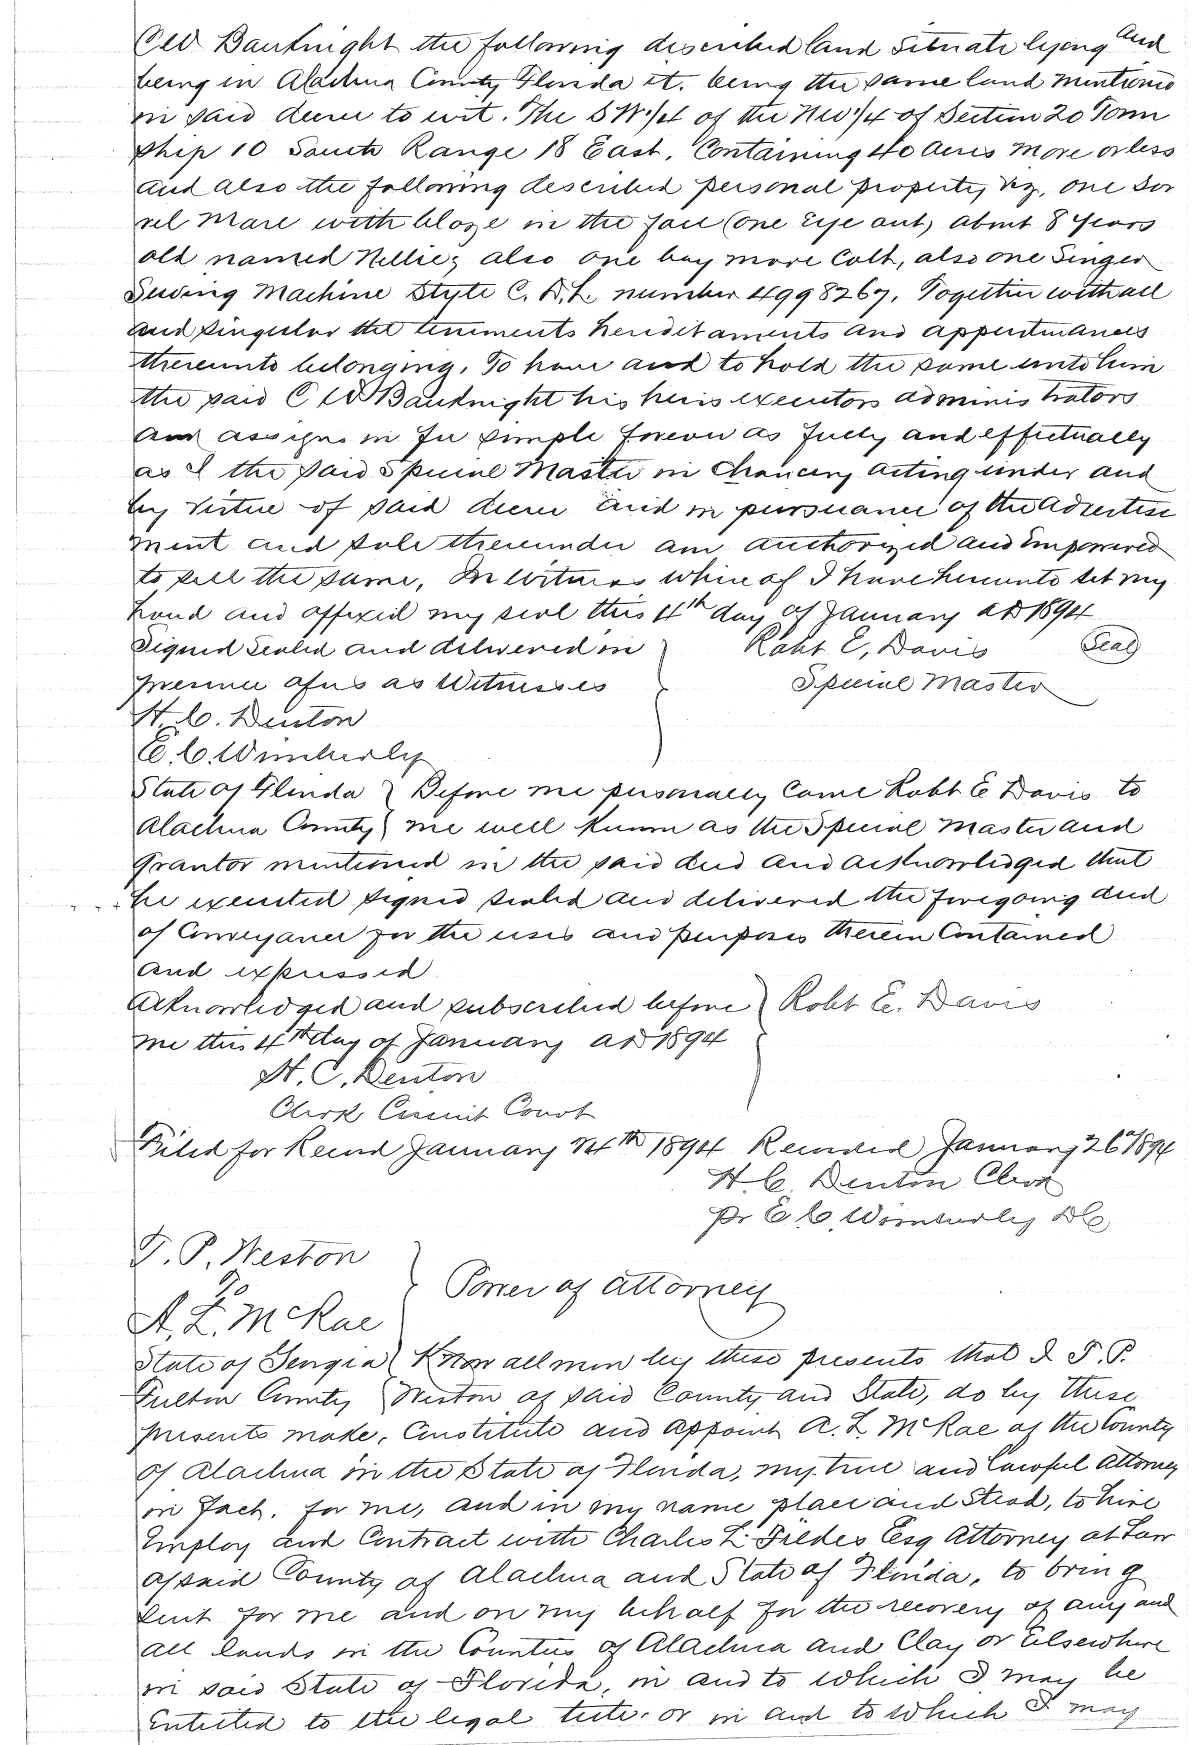 C W Bauknight the following described land situate lying and
being in Alachua County Florida it. being the same land mentioned
in said decree to wit. The SW 1/4 of the NW 1/4 of Section 20 Town
ship 10 South Range 18 East, Containing 40 acres more or less
and also the following described personal property, viz, one sor
rel mare with blaze in the face (one eye out) about 8 years
old named Nellie; also one bay mare Colt, also one Singer
Sewing Machine Style C. D. L. number 4998267. Together with all
and singular the tenements hereditaments and appertinances
thereunto belonging. To have and to hold the same unto him
the said C W Bauknight his heirs executors adminis trators
and assigns in fee simple forever as fully and effectually
as I the said Special Master in Chancery acting under and
by virtue of said decree and in pursuance of the advertise
ment and sale thereunder am authorized and empowered
to sell the same, In Witness where of I have hereunto set my
hand and affixed my seal this 4th day of January AD 1894
Signed sealed and delivered in } Robt E, Davis (Seal)
presence of us as Witnesses Special Master
H. C. Denton
E. C. Wimberly
State of Florida } Before me personally came Robt E Davis to
Alachua County } me well known as the Special Master and
Grantor mentioned in the said deed and acknowledged that
he executed signed sealed and delivered the foregoing deed
of Conveyance for the uses and purposes therein Contained
and expressed
Acknowledged and subscribed before } Robt E. Davis
me this 4th day of January AD 1894
H. C. Denton
Clerk Circuit Court
Filed for Record January 24th 1894 Recorded January 26th 1894
H. C. Denton Clerk
Pr E. C. Wimberly DC
T. P. Weston
To } Power of attorney
A. L. McRae
State of Georgia } Know all men by these presents that I T. P.
Fulton County } Weston of said County and State, do by these
presents make, Constitute and appoint A. L. McRae of the County
of Alachua in the State of Florida, my true and lawful Attorney
in fact. for me, and in my name place and stead, to hire
Employ and Contract with Charles L. Fildes Esq Attorney at Law
of said County of Alachua and State of Florida, to bring
suit for me and on my behalf for the recovery of any and
all lands in the Counties of Alachua and Clay or Elsewhere
in said State of Florida, in and to which I may be
Entitled to the legal title. or in and to which I may